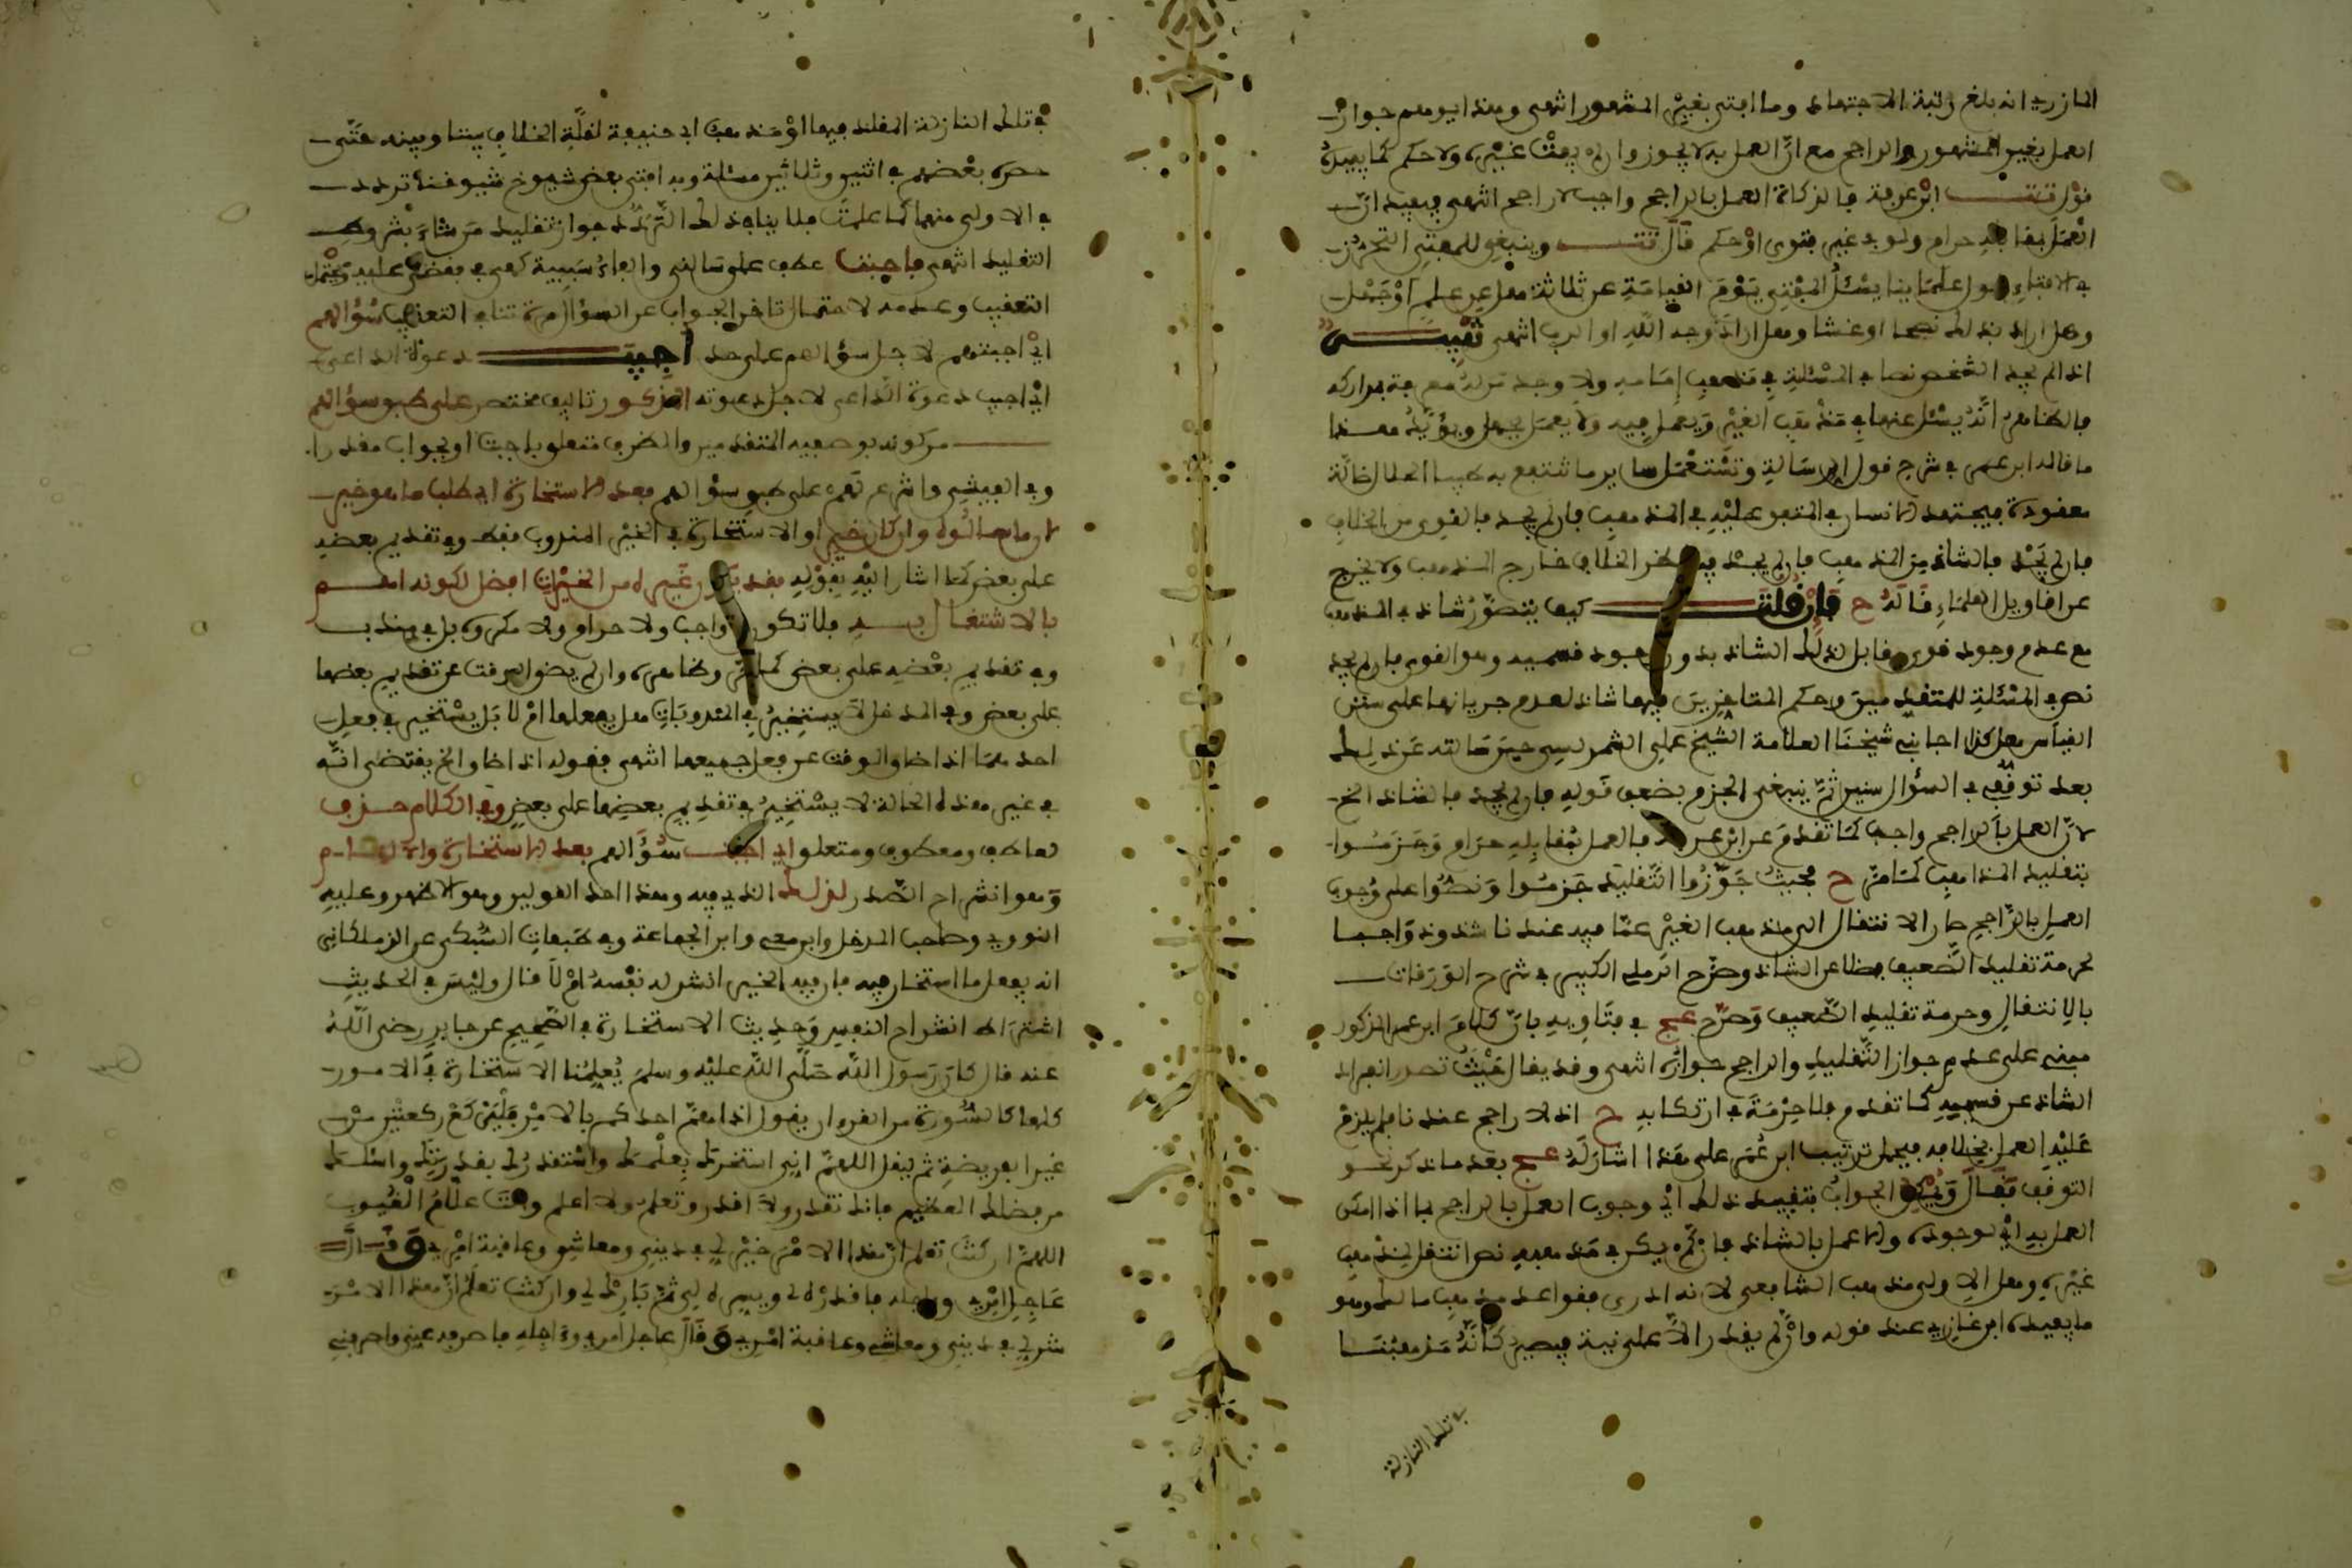 المازري انه بلغ رتبة الاجتهاد وما افتى بغير المشهور انتهى وهذا يوهم جواز
العمل بغير المشهور والراجح مع ان العمل به لا يجوز وان لم يفت غيره ولا حكم كما يفيده
قول تت ابن عرفة في الزكاة العمل بالراجح واجب لا راجح انتهى فيفيد ان
العمل بمقابله حرام ولو بغير فتوى او حكم قال تت وينبغي للمفتي التحرز
في الافتاء علمائنا يسئل المفتي يوم القيامة عن ثلاثة هل عن علم او جهل
وهل اراد بذلك نصحا او غشا وهل اراد وجه الله او الرياء انتهى تنبيه
اذا لم يجد الشخص نصا في المسئلة في مذهب امامه ولا وجد من له معرفة بمداركه
فالظاهر انه يسئل عنها في مذهب الغير ويعمل فيه ولا يعمل بجهل ويؤيده هذا
ما قاله ابن عمر في شرح قول الرسالة وتستعمل سائر ما تنتفع به طيبا الحلال ضالة
مفقودة فيجتهد الانسان في المتفق عليه في المذهب فان لم يجد فالقوي من الخلاف
فان لم يجد فالشاذ من المذهب فان لم يجد نظر الخلاف خارج المذهب ولا يخرج
عن اقاويل العلماء قاله ح فان قلت كيف يتصور شاذ في المذهب
مع عدم وجود قوي مقابل لذلك الشاذ بدون وجود قسيمه وهو القوي فان لم يجد
نص في المسئلة للمتقدمين وحكم المتاخرين فيها شاذ لعدم جريانها على سنن
القياس هل كذا اجابني شيخنا العلامة الشيخ علي الشمرلسي حين سالته عن ذلك
بعد توقف في السؤال سنين ثم ينبغي الجزم بضعف قوله فان لم يجد فالشاذ الخ
لان العمل بالراجح واجب كما تقدم عن ابن عرفة فالعمل بمقابله حرام وجزموا
بتقليد المذاهب كما مر ح فحيث جوزوا التقليد جزموا ونصوا على وجوب
العمل بالراجح صار الانتقال الى مذهب الغير عما فيه عندنا شذوذ واجبا
لحرمة تقليد الضعيف وظاهر الشاذ وصرح الرملي الكبير في شرح الورقات
بالانتقال وحرمة تقليد الضعيف وصرح عج في فتاويه بان كلام ابن عمر المذكور
مبني على عدم جواز التقليد والراجح جوازه انتهى وقد يقال حيث تصور انفراد
الشاذ عن قسيمه كما تقدم فلا حرمة في ارتكابه ح اذ لا راجح عندنا فلم يلزم
عليه العمل بخلافه فيحمل ترتيب ابن عمر على هذا اشار له عج بعد ما ذكر نحو
التوقف فقال ويمكن الجواب بتقييد ذلك اي وجوب العمل بالراجح بما اذا امكن
العمل به اي لوجوده والا عمل بالشاذ فان لم يكن في مذهبه نص انتقل لمذهب
غيره وهل الاولى مذهب الشافعي لانه ادرى بقواعد مذهب مالك وهو
ما يفيده ابن غازي عند قوله وان لم يقدر الا على نية فيصير كانه من هنا
في تلك النازلة
في تلك النازلة المقلد فيها او مذهب ابي حنيفة لقلة الخلاف بيننا وبينه حتى
حصره بعضهم في اثنين وثلاثين مسئلة وبه افتى بعض شيوخ شيوخنا تردد
في الاولى منهما كما علمت فلا ينافي ذلك التردد جواز تقليد من شاء بشروط
التقليد انتهى فاجبت عطف على سالني والفاء سببية كهي في فقضى عليه ويحتمل
التعقيب وعدمه لاحتمال تاخر الجواب عن السؤال مدة تنافي التعقيب سؤالهم
اي اجبتهم لاجل سؤالهم على حد اجيب دعوة الداعي
اي اجيب دعوة الداعي لاجل دعوته المذكور تاليف مختصر على طبق سؤالهم
من كونه بوصفيه المتقدمين والظرف متعلق باجبت او بجواب مقدرا
وفي الفيشي واشرع لهم على طبق سؤالهم بعد الاستخارة اي طلب ما هو خير
لان ما سالوه وان كان خيرا والاستخارة في الخير المندوب فقط وفي تقديم بعضه
على بعض كما اشار اليه بقوله فقد يكون غيره من الخيرات افضل لكونه اهم
بالاشتغال به فلا تكون في واجب ولا حرام ولا مكروه بل في مندب
وفي تقديم بعضه على بعض كما مر وظاهره وان لم يضق الوقت عن تقديم بعضها
على بعض وفي المدخل لا يستخير في المندوبات هل يفعلها ام لا بل يستخير في فعل
احدهما اذا ضاق الوقت عن فعل جميعها انتهى فقوله اذا ضاق الخ يقتضي انه
في غير هذه الحالة لا يستخير في تقديم بعضها على بعض وفي الكلام حذف
لعاطف ومعطوف ومتعلق اي اجبت سؤالهم بعد الاستخارة والالهام
وهو انشراح الصدر لذلك الذي فيه وهذا احد القولين وهو الاظهر وعليه
النووي وصاحب المدخل وابن معلى وابن الجماعة وفي طبقات السبكي عن الزملكاني
انه يفعل ما استخار فيه فان فيه الخير انشر له نفسه ام لا قال وليس في الحديث
اشتراط انشراح النفس وحديث الاستخارة في الصحيح عن جابر رضي الله
عنه قال كان رسول الله صلى الله عليه وسلم يعلمنا الاستخارة في الامور
كلها كالسورة من القرءان يقول اذا هم احدكم بالامر فليركع ركعتين من
غير الفريضة ثم ليقل اللهم اني استخيرك بعلمك واستقدرك بقدرتك واسئلك
من فضلك العظيم فانك تقدر ولا اقدر وتعلم ولا اعلم وانت علام الغيوب
اللهم ان كنت تعلم ان هذا الامر خير لي في ديني ومعاشي وعاقبة امري وقال
عاجل امري وءاجله فاقدره لي ويسره لي ثم بارك لي وان كنت تعلم ان هذا الامر
شر لي في ديني ومعاشي وعاقبة امري وقال عاجل امري وءاجله فاصرفه عني واصرفني